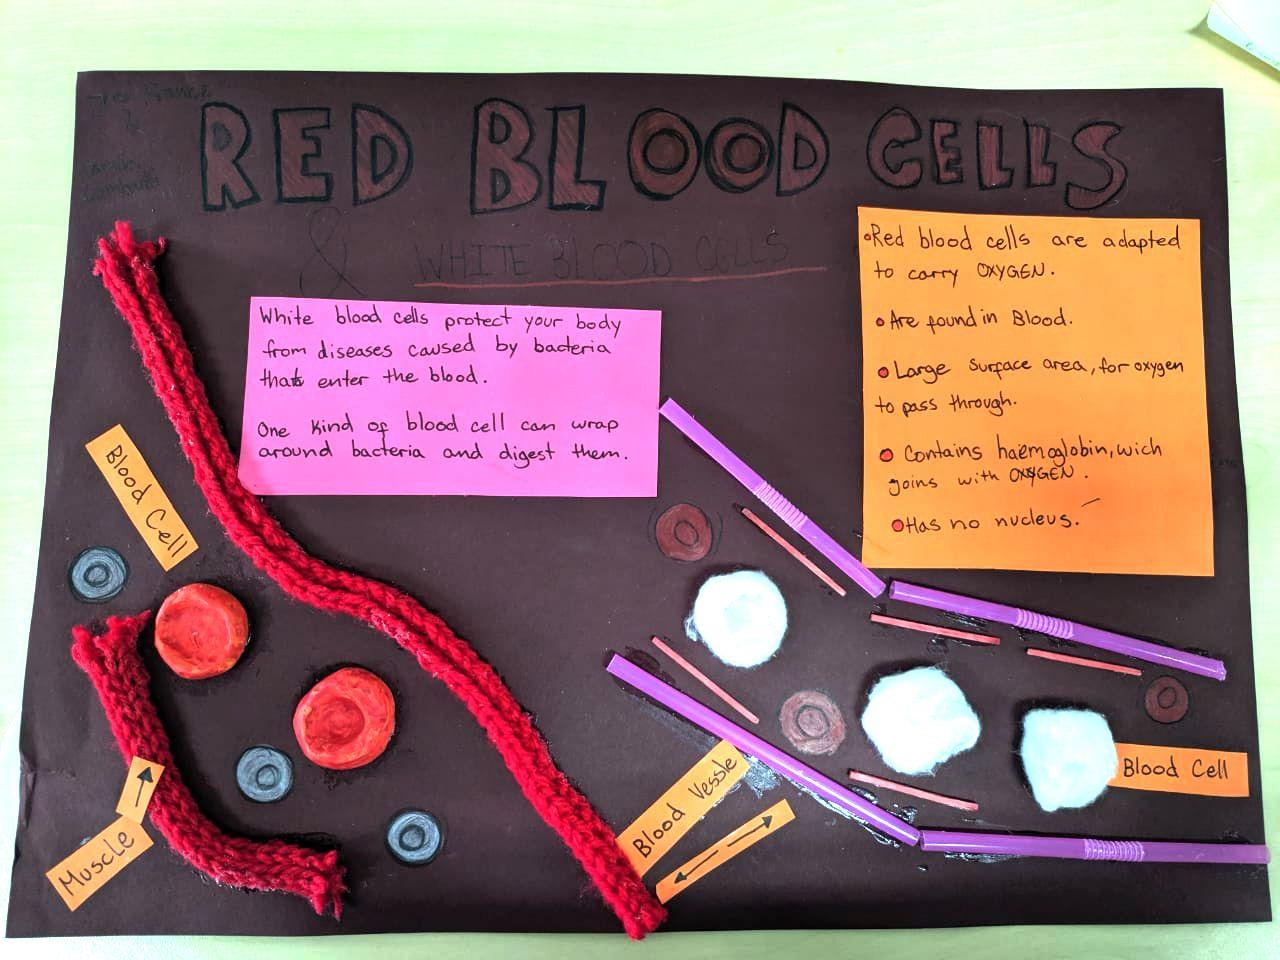 RED BLOOD CELLS
& WHITE BLOOD CELLS
White blood cells protect your body
from diseases caused by bacteria
that enter the blood.
One kind of blood cell can wrap
around bacteria and digest them.
Red blood cells are adapted
to carry OXYGEN.
• Are found in Blood.
• Large surface area, for oxygen
to pass through.
• Contains haemoglobin, wich
goins with OXYGEN.
• Has no nucleus.
Blood Cell
Muscle
Blood Vessle
Blood Cell